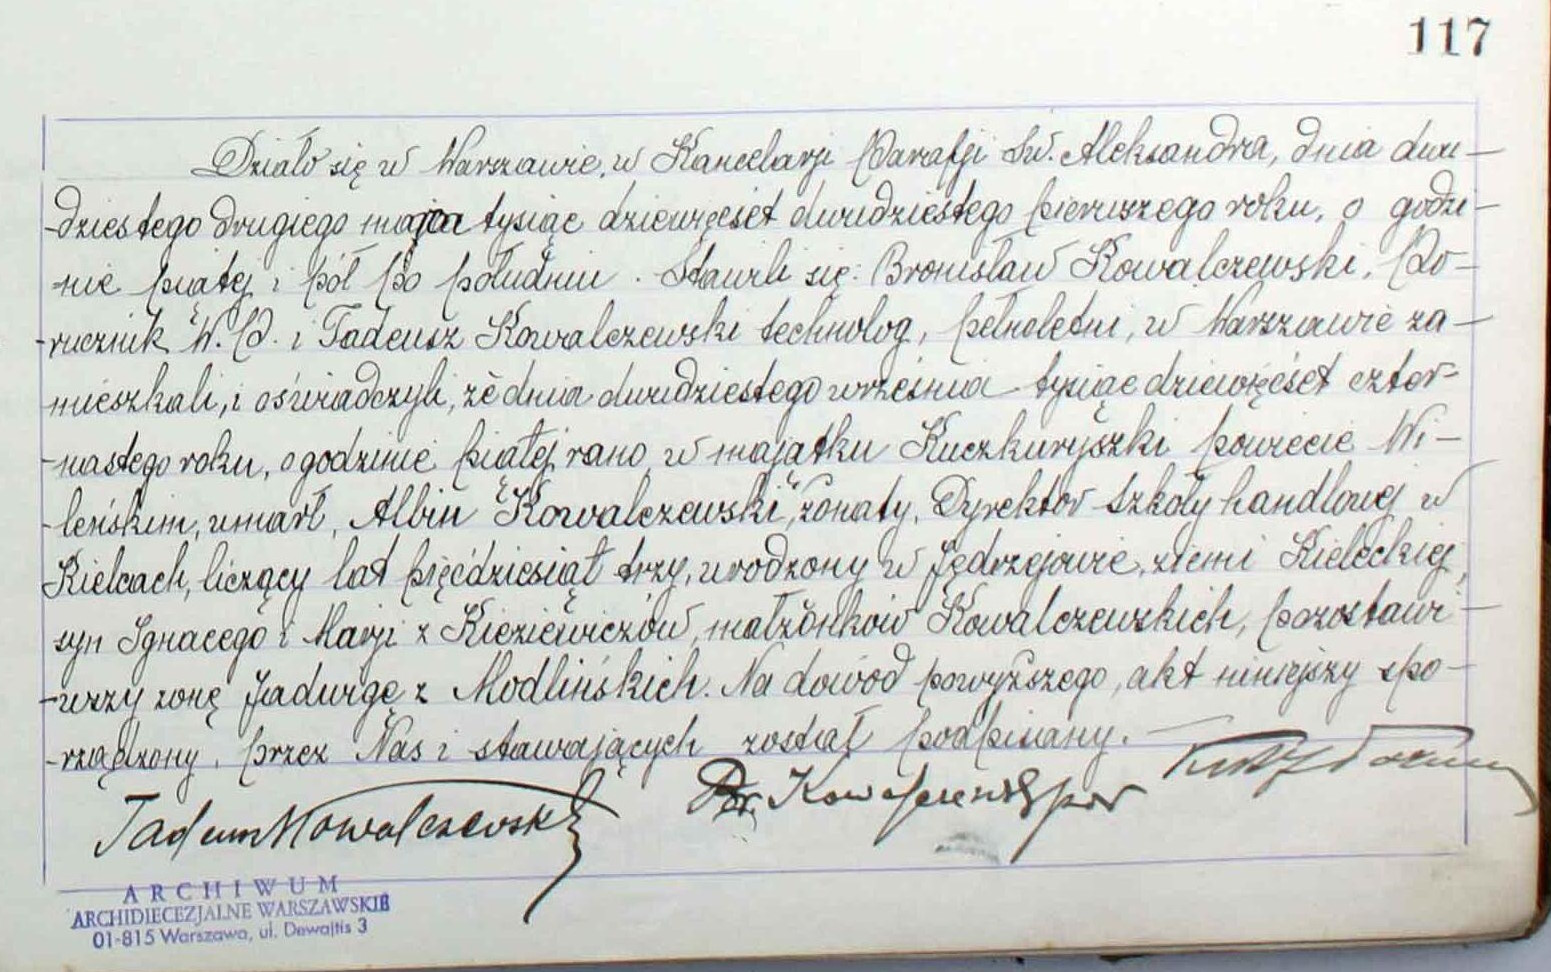 117
Działo się w Warszawie, w Kancelarji Parafji Św. Aleksandra, dnia dwu-
dziestego drugiego maja tysiąc dziewięćset dwudziestego pierwszego roku, o godzi-
nie piątej i pół po południu. Stawili się: Bronisław Kowalczewski, Po-
rucznik W.P. i Tadeusz Kowalczewski technolog, pełnoletni, w Warszawie za-
mieszkali, i oświadczyli, że dnia dwudziestego września tysiąc dziewięćset czter-
nastego roku, o godzinie piątej rano, w majątku Kuczkuryszki powiecie Wi-
leńskim, umarł, Albin Kowalczewski, żonaty, Dyrektor Szkoły handlowej w
Kielcach, liczący lat pięćdziesiąt trzy, urodzony w Jędrzejowie, ziemi Kieleckiej,
syn Ignacego i Marji z Kieziewiczów, małżonków Kowalczewskich, pozostawi-
wszy żonę Jadwigę z Modlińskich. Na dowód powyższego, akt niniejszy spo-
rządzony, przez Nas i stawających został podpisany.
Tadeusz Kowalczewski Br. Kowalczewski por
ARCHIWUM
ARCHIDIECEZJALNE WARSZAWSKIE
01-815 Warszawa, ul. Dewajtis 3